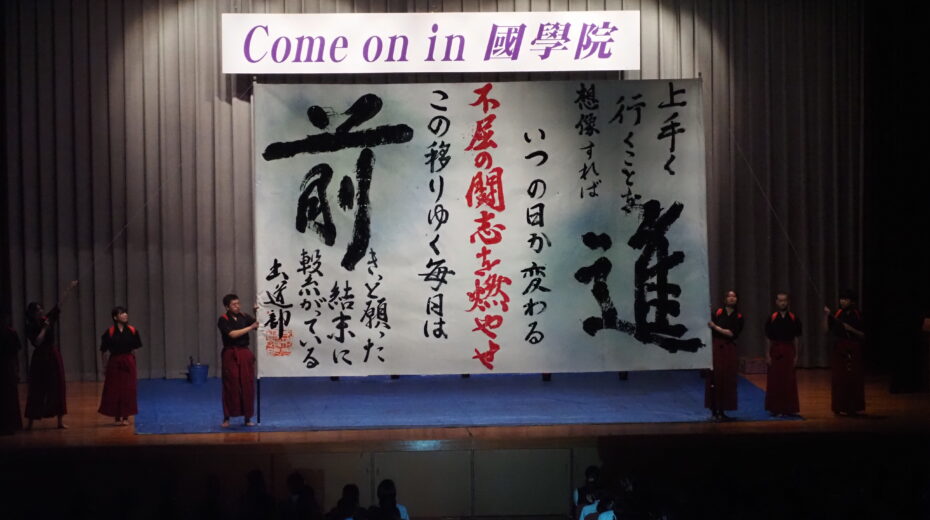 Come on in 國學院
上手く
行くことを
想像すれば
進
いつの日か変わる
不屈の闘志を燃やせ
この移りゆく毎日は
前
きっと願った
結末に
繋がっている
書道部